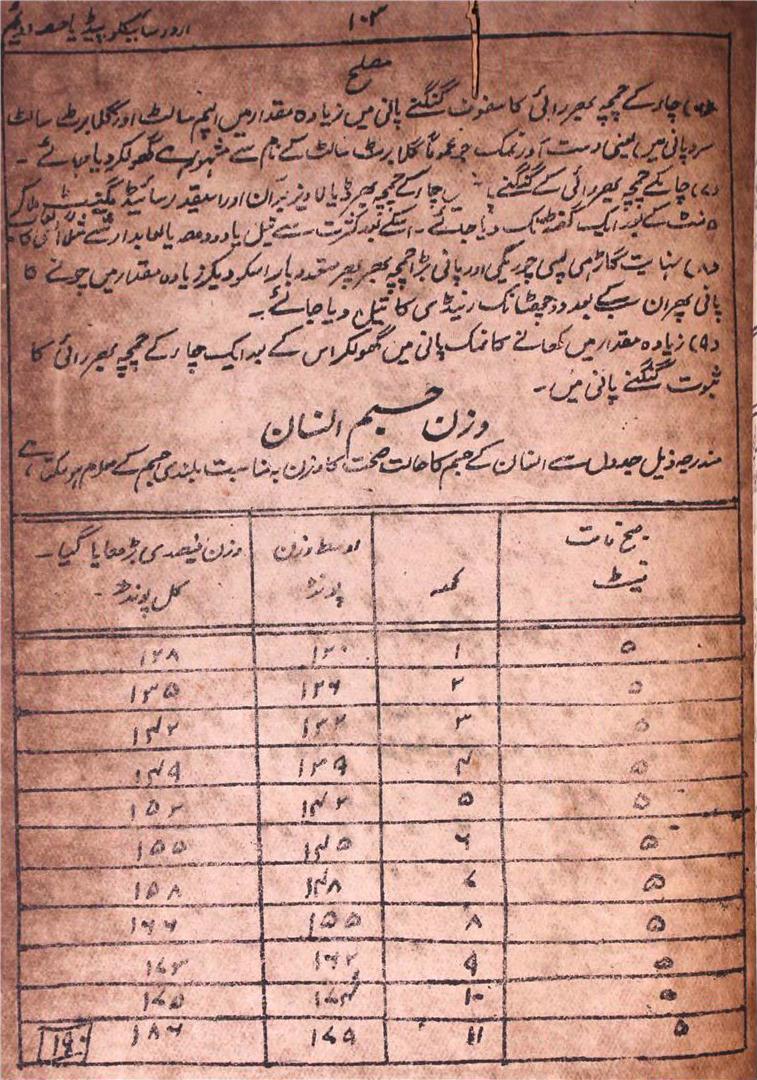 ۱۰۳
اردو سائیکلو پیڈیا حصہ
مصلح
چار کے چمچہ بھر رائی کا سفوف گنگنے پانی میں زیادہ مقدار میں اپسم سالٹ اور گلابرٹ سالٹ
سرد پانی میں یعنی دست آور نمک جو عموماً گلابرٹ سالٹ کے نام سے مشہور ہے گھولکر دیا جائے ۔
(۷) چار کے چمچہ بھر رائی کے گنگنے چار کے چمچہ بھر اور اسیقدر
منٹ کے بعد ایک گھنٹہ تک دیا جائے ۔ اسکے بعد کثرت سے تیل یا دودھ یا لعابدار شے
(۸) نہایت گاڑھی لپسی چوریگی اور پانی بڑا چمچہ بھر بھر متعدد بار اسکو دیکر زیادہ مقدار میں چونے کا
پانی پھر ان سب کے بعد دو چھٹانک رینڈی کا تیل دیا جائے ۔
(۹) زیادہ مقدار میں کھانے کا نمک پانی میں گھولکر اس کے بعد ایک چار کے چمچہ بھر رائی کا
ثبوت گنگنے پانی میں ۔
وزن جسم انسان
مندرجہ ذیل جدول سے انسان کے جسم کا حالت صحت کا وزن بمناسبت بلندی جسم کے معلوم ہو سکتا ہے
اوسط وزن پونڈ وزن فیصدی بڑھایا گیا ۔ کل پونڈ ۔
فیٹ
۵ ۱ ۱۲۰ ۱۲۸
۵ ۲ ۱۲۶ ۱۳۵
۵ ۳ ۱۳۳ ۱۴۲
۵ ۴ ۱۳۹ ۱۴۹
۵ ۵ ۱۴۲ ۱۵۲
۵ ۶ ۱۴۵ ۱۵۵
۵ ۷ ۱۴۸ ۱۵۸
۵ ۸ ۱۵۵ ۱۶۶
۵ ۹ ۱۶۲ ۱۷۳
۵ ۱۰ ۱۷۵
۵ ۱۱ ۱۷۹ ۱۸۶
۱۹۰